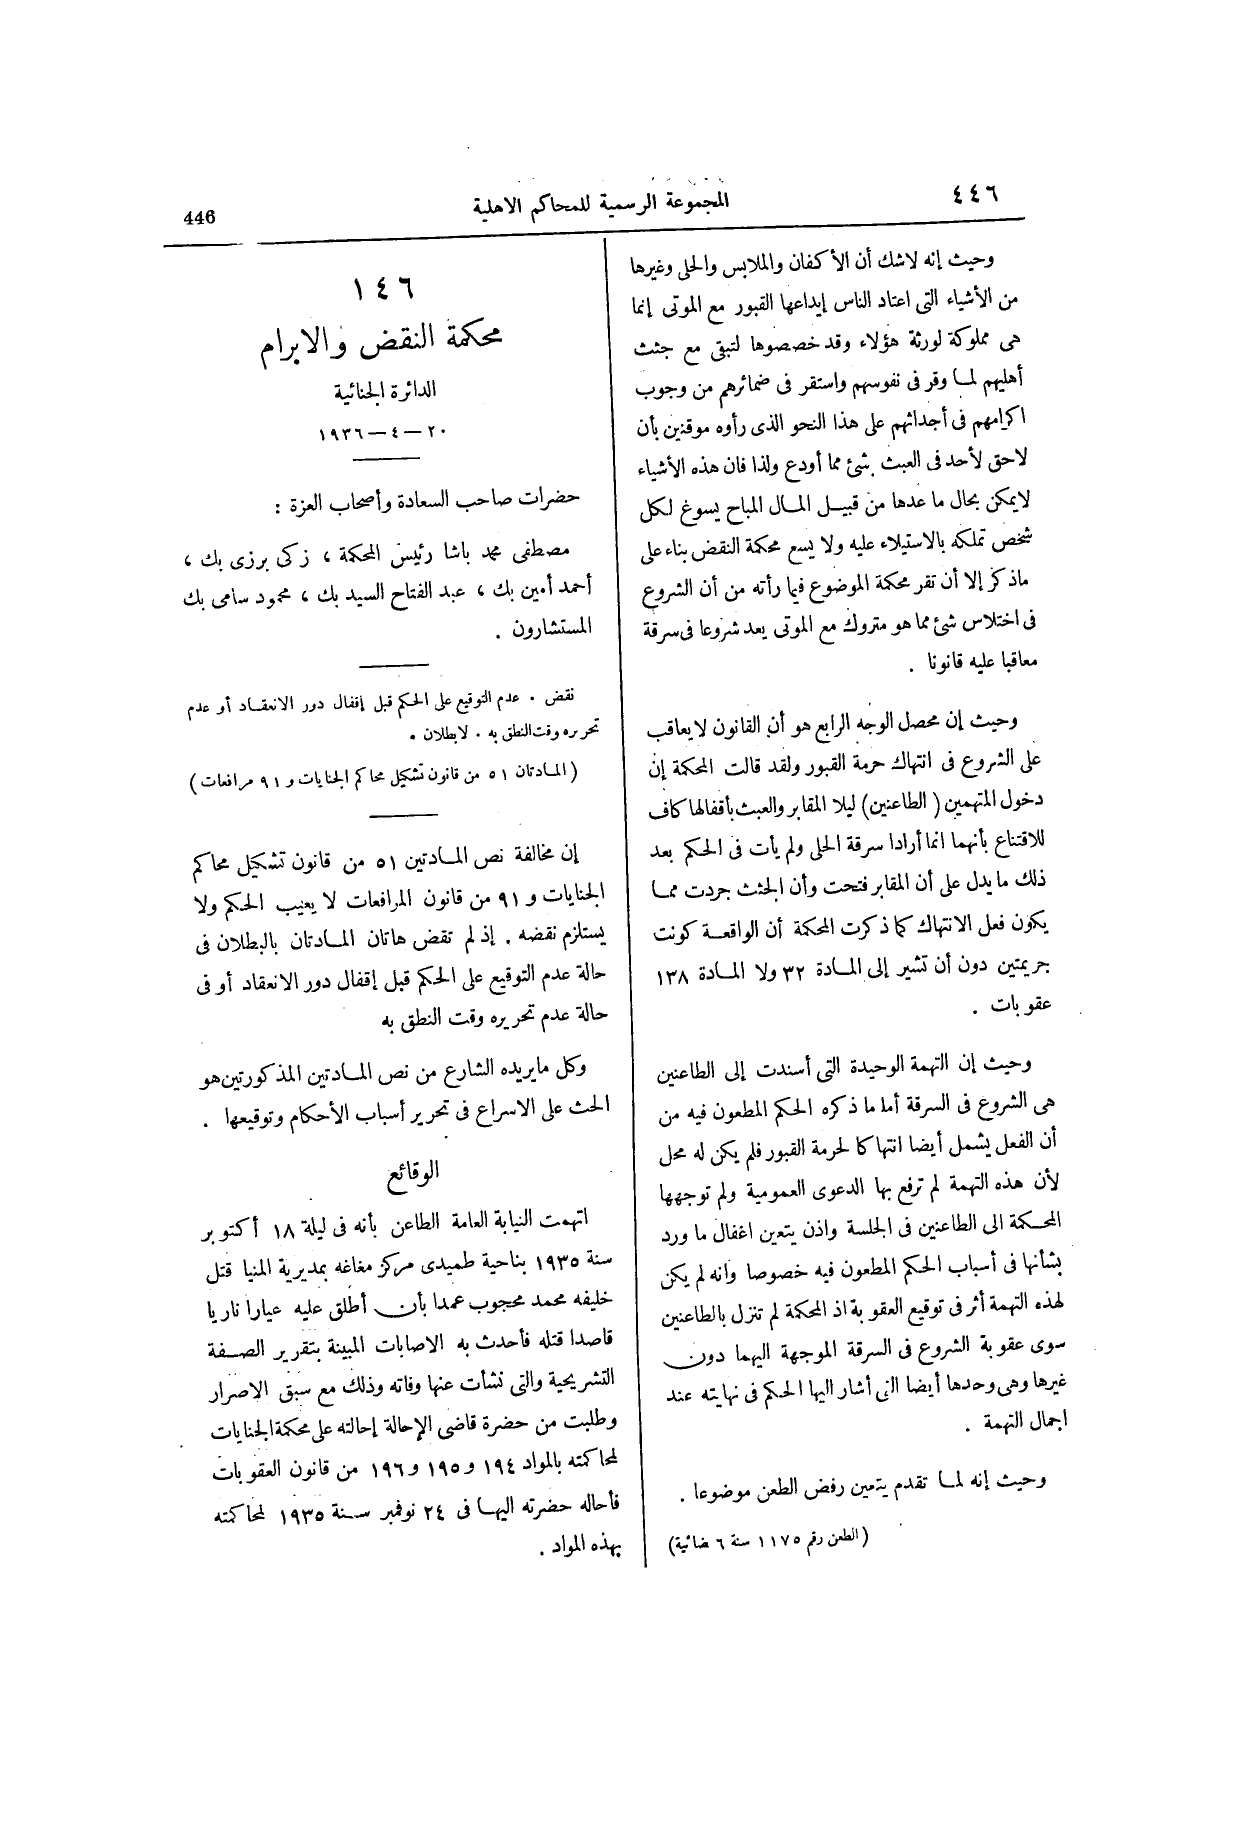 ٤٤٦
المجموعة الرسمية للمحاكم الاهلية
446
وحيث إنه لاشك أن الأكفان والملابس والحلى وغيرها
من الأشياء التى اعتاد الناس إيداعها القبور مع الموتى إنما
هى مملوكة لورثة هؤلاء وقد خصصوها لتبقى مع جثث
أهليهم لما وقر فى نفوسهم واستقر فى ضمائرهم من وجوب
اكرامهم فى أجداثهم على هذا النحو الذى رأوه موقنين بأن
لاحق لأحد فى العبث بشئ مما أودع ولذا فان هذه الأشياء
لايمكن بحال ما عدها من قبيل المال المباح يسوغ لكل
شخص تملكه بالاستيلاء عليه ولا يسع محكمة النقض بناء على
ماذكر إلا أن تقر محكمة الموضوع فيما رأته من أن الشروع
فى اختلاس شئ مما هو متروك مع الموتى يعد شروعا فى سرقة
معاقبا عليه قانونا .
وحيث إن محصل الوجه الرابع هو أن القانون لا يعاقب
على الشروع فى انتهاك حرمة القبور ولقد قالت المحكمة إن
دخول المتهمين (الطاعنين) ليلا المقابر والعبث بأقفالها كاف
للاقتناع بأنهما انما أرادا سرقة الحلى ولم يأت فى الحكم بعد
ذلك ما يدل على أن المقابر فتحت وأن الجثث جردت مما
يكون فعل الانتهاك كما ذكرت المحكمة أن الواقعة كونت
جريمتين دون أن تشير إلى المادة ٣٢ ولا المادة ١٣٨
عقوبات .
وحيث إن التهمة الوحيدة التى أسندت إلى الطاعنين
هى الشروع فى السرقة أما ما ذكره الحكم المطعون فيه من
أن الفعل يشمل أيضا انتهاكا لحرمة القبور فلم يكن له محل
لأن هذه التهمة لم ترفع بها الدعوى العمومية ولم توجهها
المحكمة الى الطاعنين فى الجلسة واذن يتعين اغفال ما ورد
بشأنها فى أسباب الحكم المطعون فيه خصوصا وانه لم يكن
لهذه التهمة أثر فى توقيع العقوبة اذ المحكمة لم تنزل بالطاعنين
سوى عقوبة الشروع فى السرقة الموجهة اليهما دون
غيرها وهى وحدها أيضا التى أشار اليها الحكم فى نهايته عند
اجمال التهمة .
وحيث إنه لما تقدم يتعين رفض الطعن موضوعا .
(الطعن رقم ١١٧٥ سنة ٦ قضائية)
١٤٦
محكمة النقض والابرام
الدائرة الجنائية
٢٠-٤-١٩٣٦
حضرات صاحب السعادة وأصحاب العزة :
مصطفى محمد باشا رئيس المحكمة ، زكى برزى بك ،
أحمد أمين بك ، عبد الفتاح السيد بك ، محمود سامى بك
المستشارون .
نقض . عدم التوقيع على الحكم قبل إقفال دور الانعقاد أو عدم
تحريره وقت النطق به . لا بطلان .
(المادتان ٥١ من قانون تشكيل محاكم الجنايات و ٩١ مرافعات)
إن مخالفة نص المادتين ٥١ من قانون تشكيل محاكم
الجنايات و ٩١ من قانون المرافعات لا يعيب الحكم ولا
يستلزم نقضه . إذ لم تقض هاتان المادتان بالبطلان فى
حالة عدم التوقيع على الحكم قبل إقفال دور الانعقاد أو فى
حالة عدم تحريره وقت النطق به
وكل مايريده الشارع من نص المادتين المذكورتين هو
الحث على الاسراع فى تحرير أسباب الأحكام وتوقيعها .
الوقائع
اتهمت النيابة العامة الطاعن بأنه فى ليلة ١٨ أكتوبر
سنة ١٩٣٥ بناحية طميدى مركز مغاغه بمديرية المنيا قتل
خليفه محمد محجوب عمدا بأن أطلق عليه عيارا ناريا
قاصدا قتله فأحدث به الاصابات المبينة بتقرير الصفة
التشريحية والتى نشأت عنها وفاته وذلك مع سبق الاصرار
وطلبت من حضرة قاضى الإحالة إحالته على محكمة الجنايات
لمحاكمته بالمواد ١٩٤ و ١٩٥ و ١٩٦ من قانون العقوبات
فأحاله حضرته اليها فى ٢٤ نوفمبر سنة ١٩٣٥ لمحاكمته
بهذه المواد .